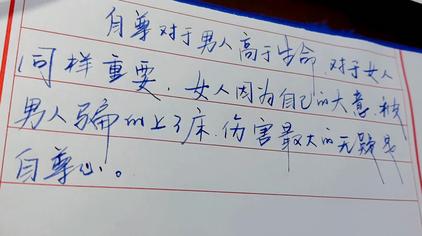 自尊对于男人高于生命，对于女人
同样重要，女人因为自己的大意，被
男人骗的上了床，伤害最大的无疑是
自尊心。